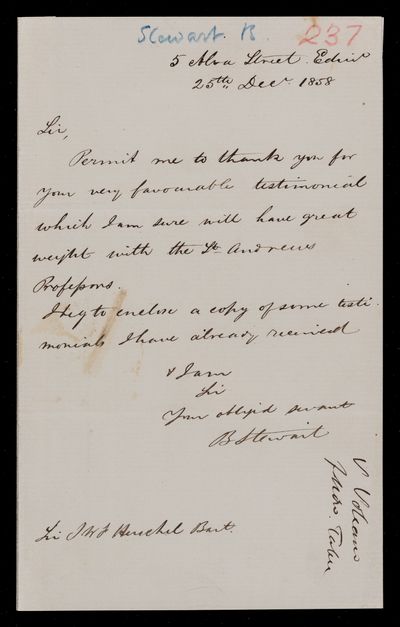 Stewart. B. 237
5 Alva Street. Edinr
25th Decr. 1858
Sir,
Permit me to thank you for
your very favourable testimonial
which I am sure will have great
weight with the St. Andrews
Professors.
I beg to enclose a copy of some testi-
monials I have already received
& I am
Sir
Your obliged servant
B Stewart
Sir J W F Herschel Bart.
V